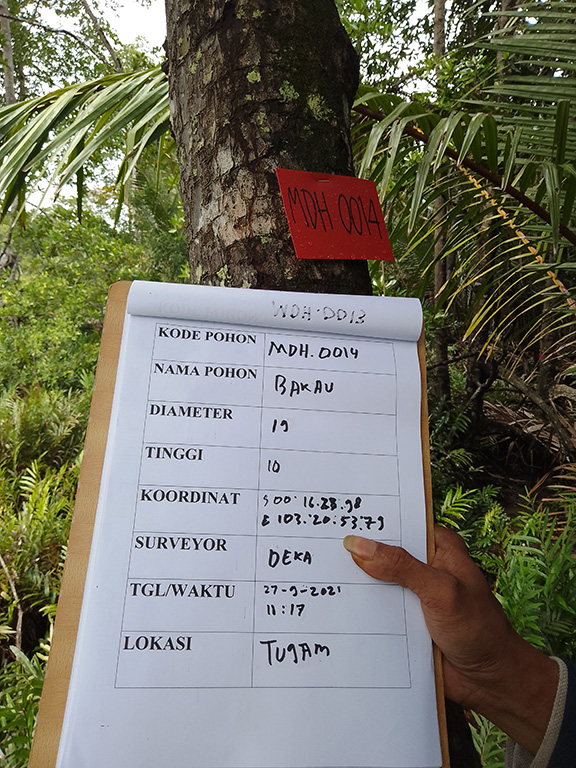 MDH 0014
KODE POHON MDH.0014
NAMA POHON BAKAU
DIAMETER 19
TINGGI 10
KOORDINAT S 00.16.28.98
E 103.20.53.79
SURVEYOR DEKA
TGL/WAKTU 27-9-2021
11:17
LOKASI TUGAM